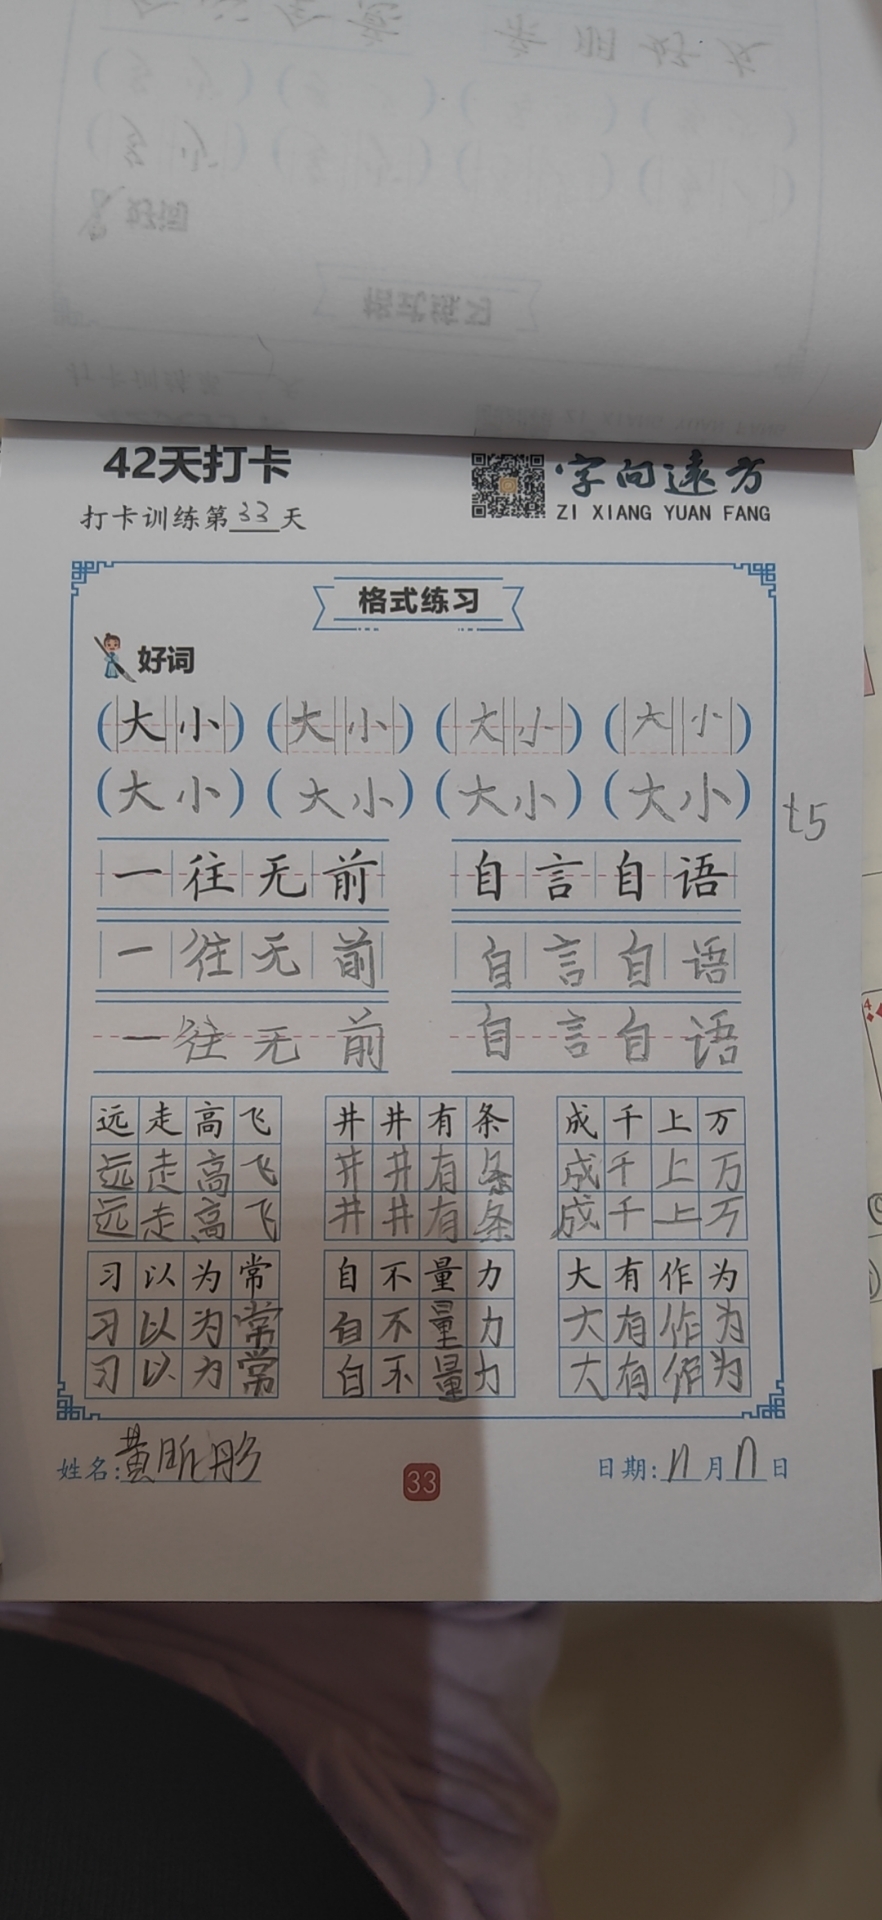 42天打卡
字向远方
ZI XIANG YUAN FANG
打卡训练第33天
格式练习
好词
(大小) (大小) (大小) (大小)
(大小) (大小) (大小) (大小)
t5
一往无前 自言自语
一往无前 自言自语
一往无前 自言自语
远走高飞 井井有条 成千上万
远走高飞 井井有条 成千上万
远走高飞 井井有条 成千上万
习以为常 自不量力 大有作为
习以为常 自不量力 大有作为
习以为常 自不量力 大有作为
姓名:黄昕彤
33
日期:11月17日